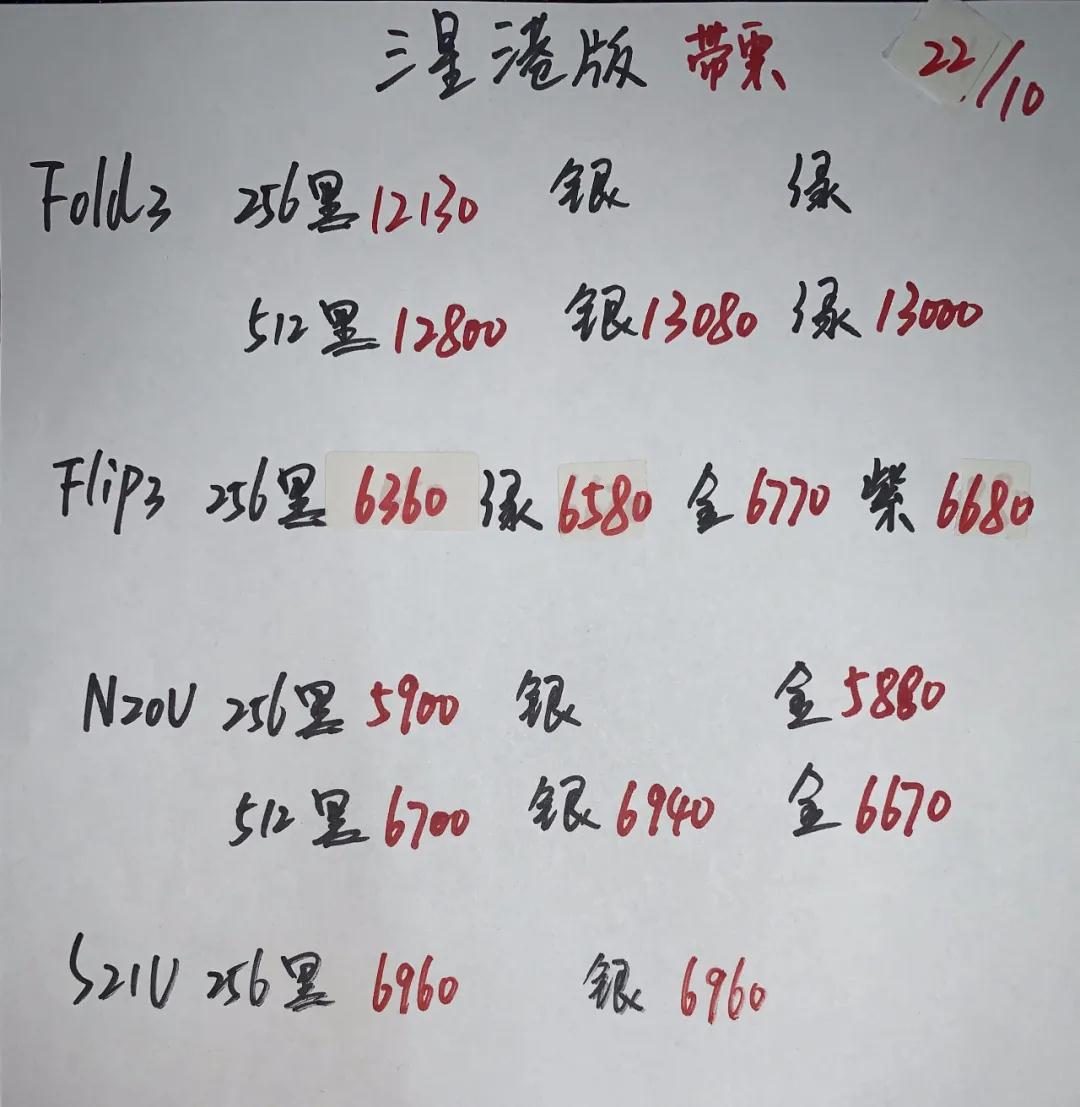 三星港版 带票 22/10
Fold3 256黑12130 银 绿
512黑12800 银13080 绿13000
Flip3 256黑6360 绿6580 金6770 紫6680
N20U 256黑5900 银 金5880
512黑6700 银6940 金6670
S21U 256黑6960 银6960